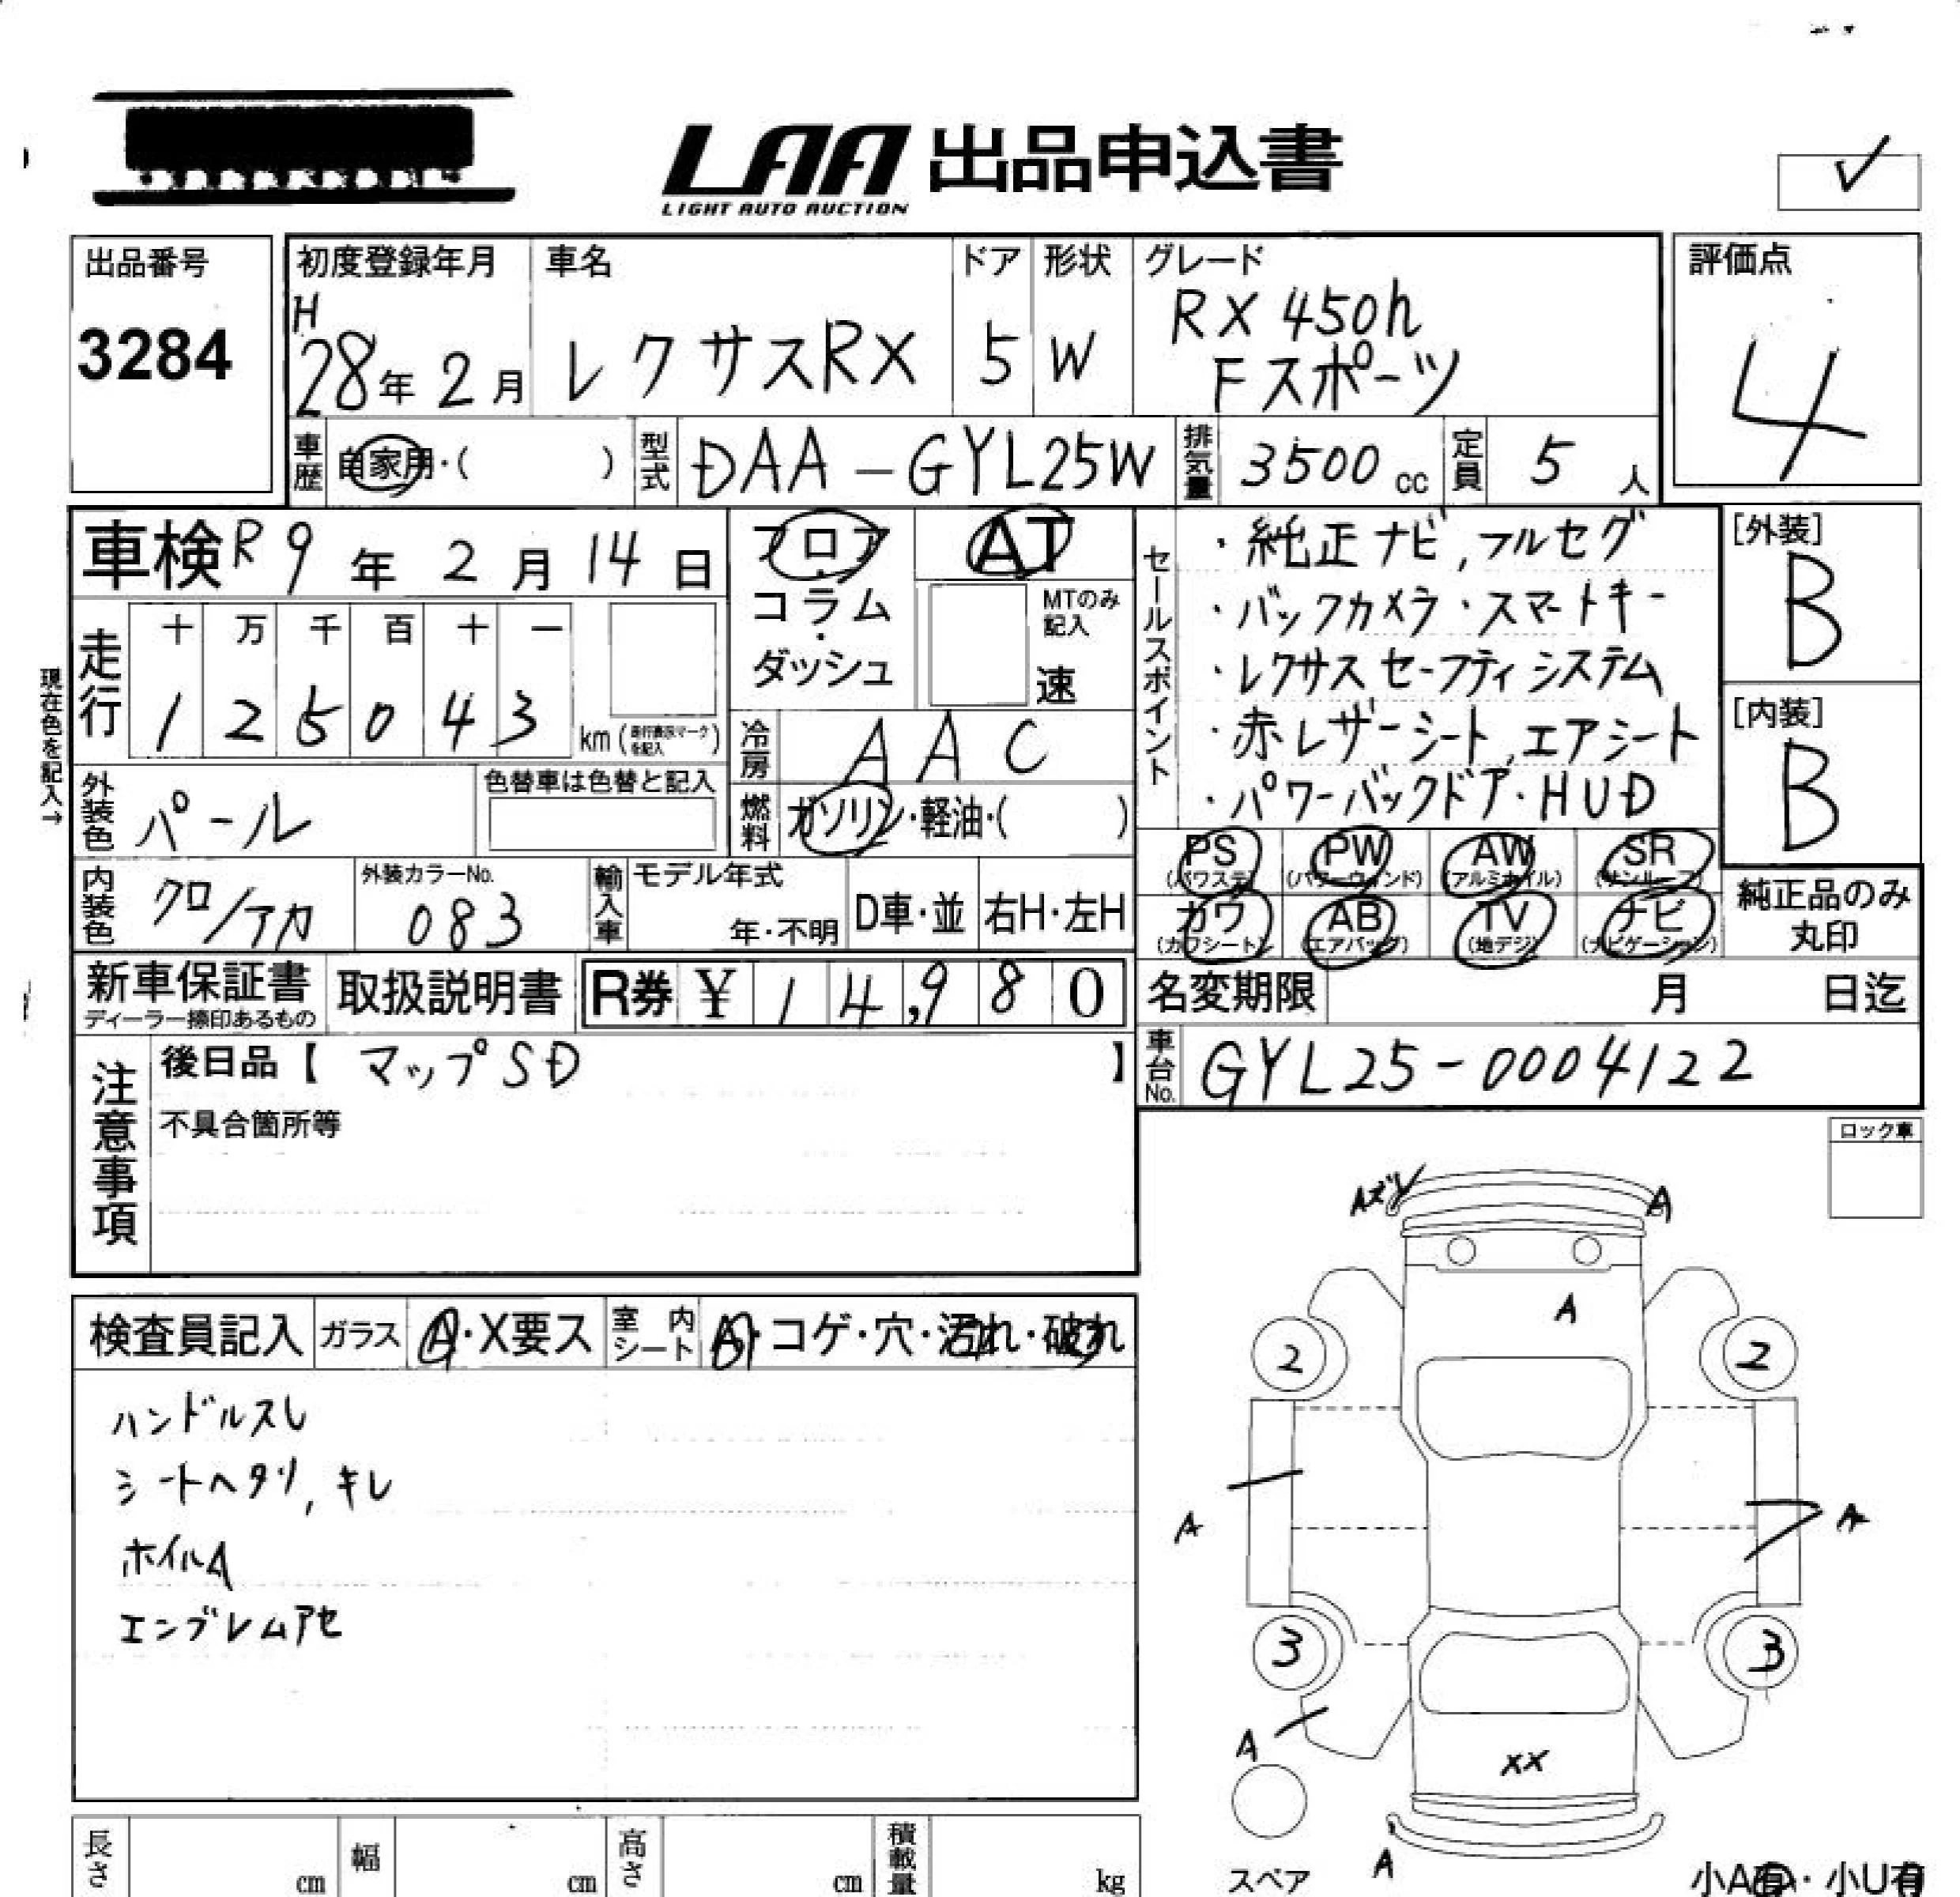 LAA 出品申込書
LIGHT AUTO AUCTION
✓
出品番号
3284
初度登録年月
H
28年2月
車名
レクサスRX
ドア
5
形状
W
グレード
RX 450h
Fスポーツ
評価点
4
車歴 自家用・( )
型式 DAA-GYL25W
排気量 3500 cc
定員 5 人
車検 R9年2月14日
フロア
・
コラム
・
ダッシュ
AT
MTのみ
記入
速
現在色を記入→
走行
十 万 千 百 十 一
1 2 5 0 4 3
km(走行表示マークを記入)
冷房 AAC
燃料 ガソリン・軽油・( )
外装色 パール
色替車は色替と記入
内装色 クロ/アカ
外装カラーNo.
083
輸入車
モデル年式
年・不明
D車・並
右H・左H
セールスポイント
・純正ナビ,フルセグ
・バックカメラ・スマートキー
・レクサスセーフティシステム
・赤レザーシート,エアシート
・パワーバックドア・HUD
[外装]
B
[内装]
B
PS (パワステ)
PW (パワーウィンド)
AW (アルミホイル)
SR (サンルーフ)
カワ (カワシート)
AB (エアバッグ)
TV (地デジ)
ナビ (ナビゲーション)
純正品のみ
丸印
新車保証書
ディーラー捺印あるもの
取扱説明書
R券 ¥ 14,980
名変期限 月 日迄
車台No. GYL25-0004122
注意事項
後日品【 マップSD 】
不具合箇所等
ロック車
検査員記入
ガラス A・X要ス
室内シート A・コゲ・穴・汚れ・破れ
ハンドルスレ
シートヘタリ,キレ
ホイルA
エンブレムアセ
Aズレ
A
A
2
2
A
A
3
3
A
XX
A
スペア
小A有・小U有
長さ cm
幅 cm
高さ cm
積載量 kg